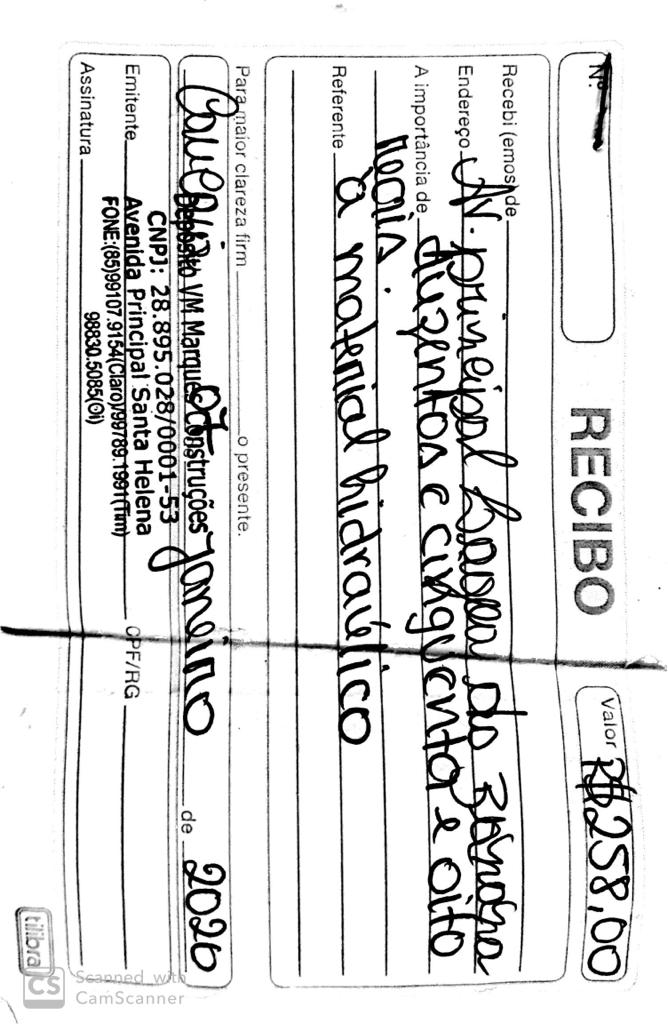 Nº
RECIBO
Valor R$ 258,00
Recebi (emos) de
Endereço Av. principal do
A importância de duzentos e cinquenta e oito
reais.
Referente à material hidraúlico
Para maior clareza firm o presente.
Caucaia 07 janeiro de 2020
Depósito VM Marques Construções
CNPJ: 28.895.028/0001-53
Emitente Avenida Principal Santa Helena CPF/RG
FONE:(85)99107.9154(Claro)/99789.1991(Tim)
98830.5085(Oi)
Assinatura
tilibra
CS Scanned with
CamScanner